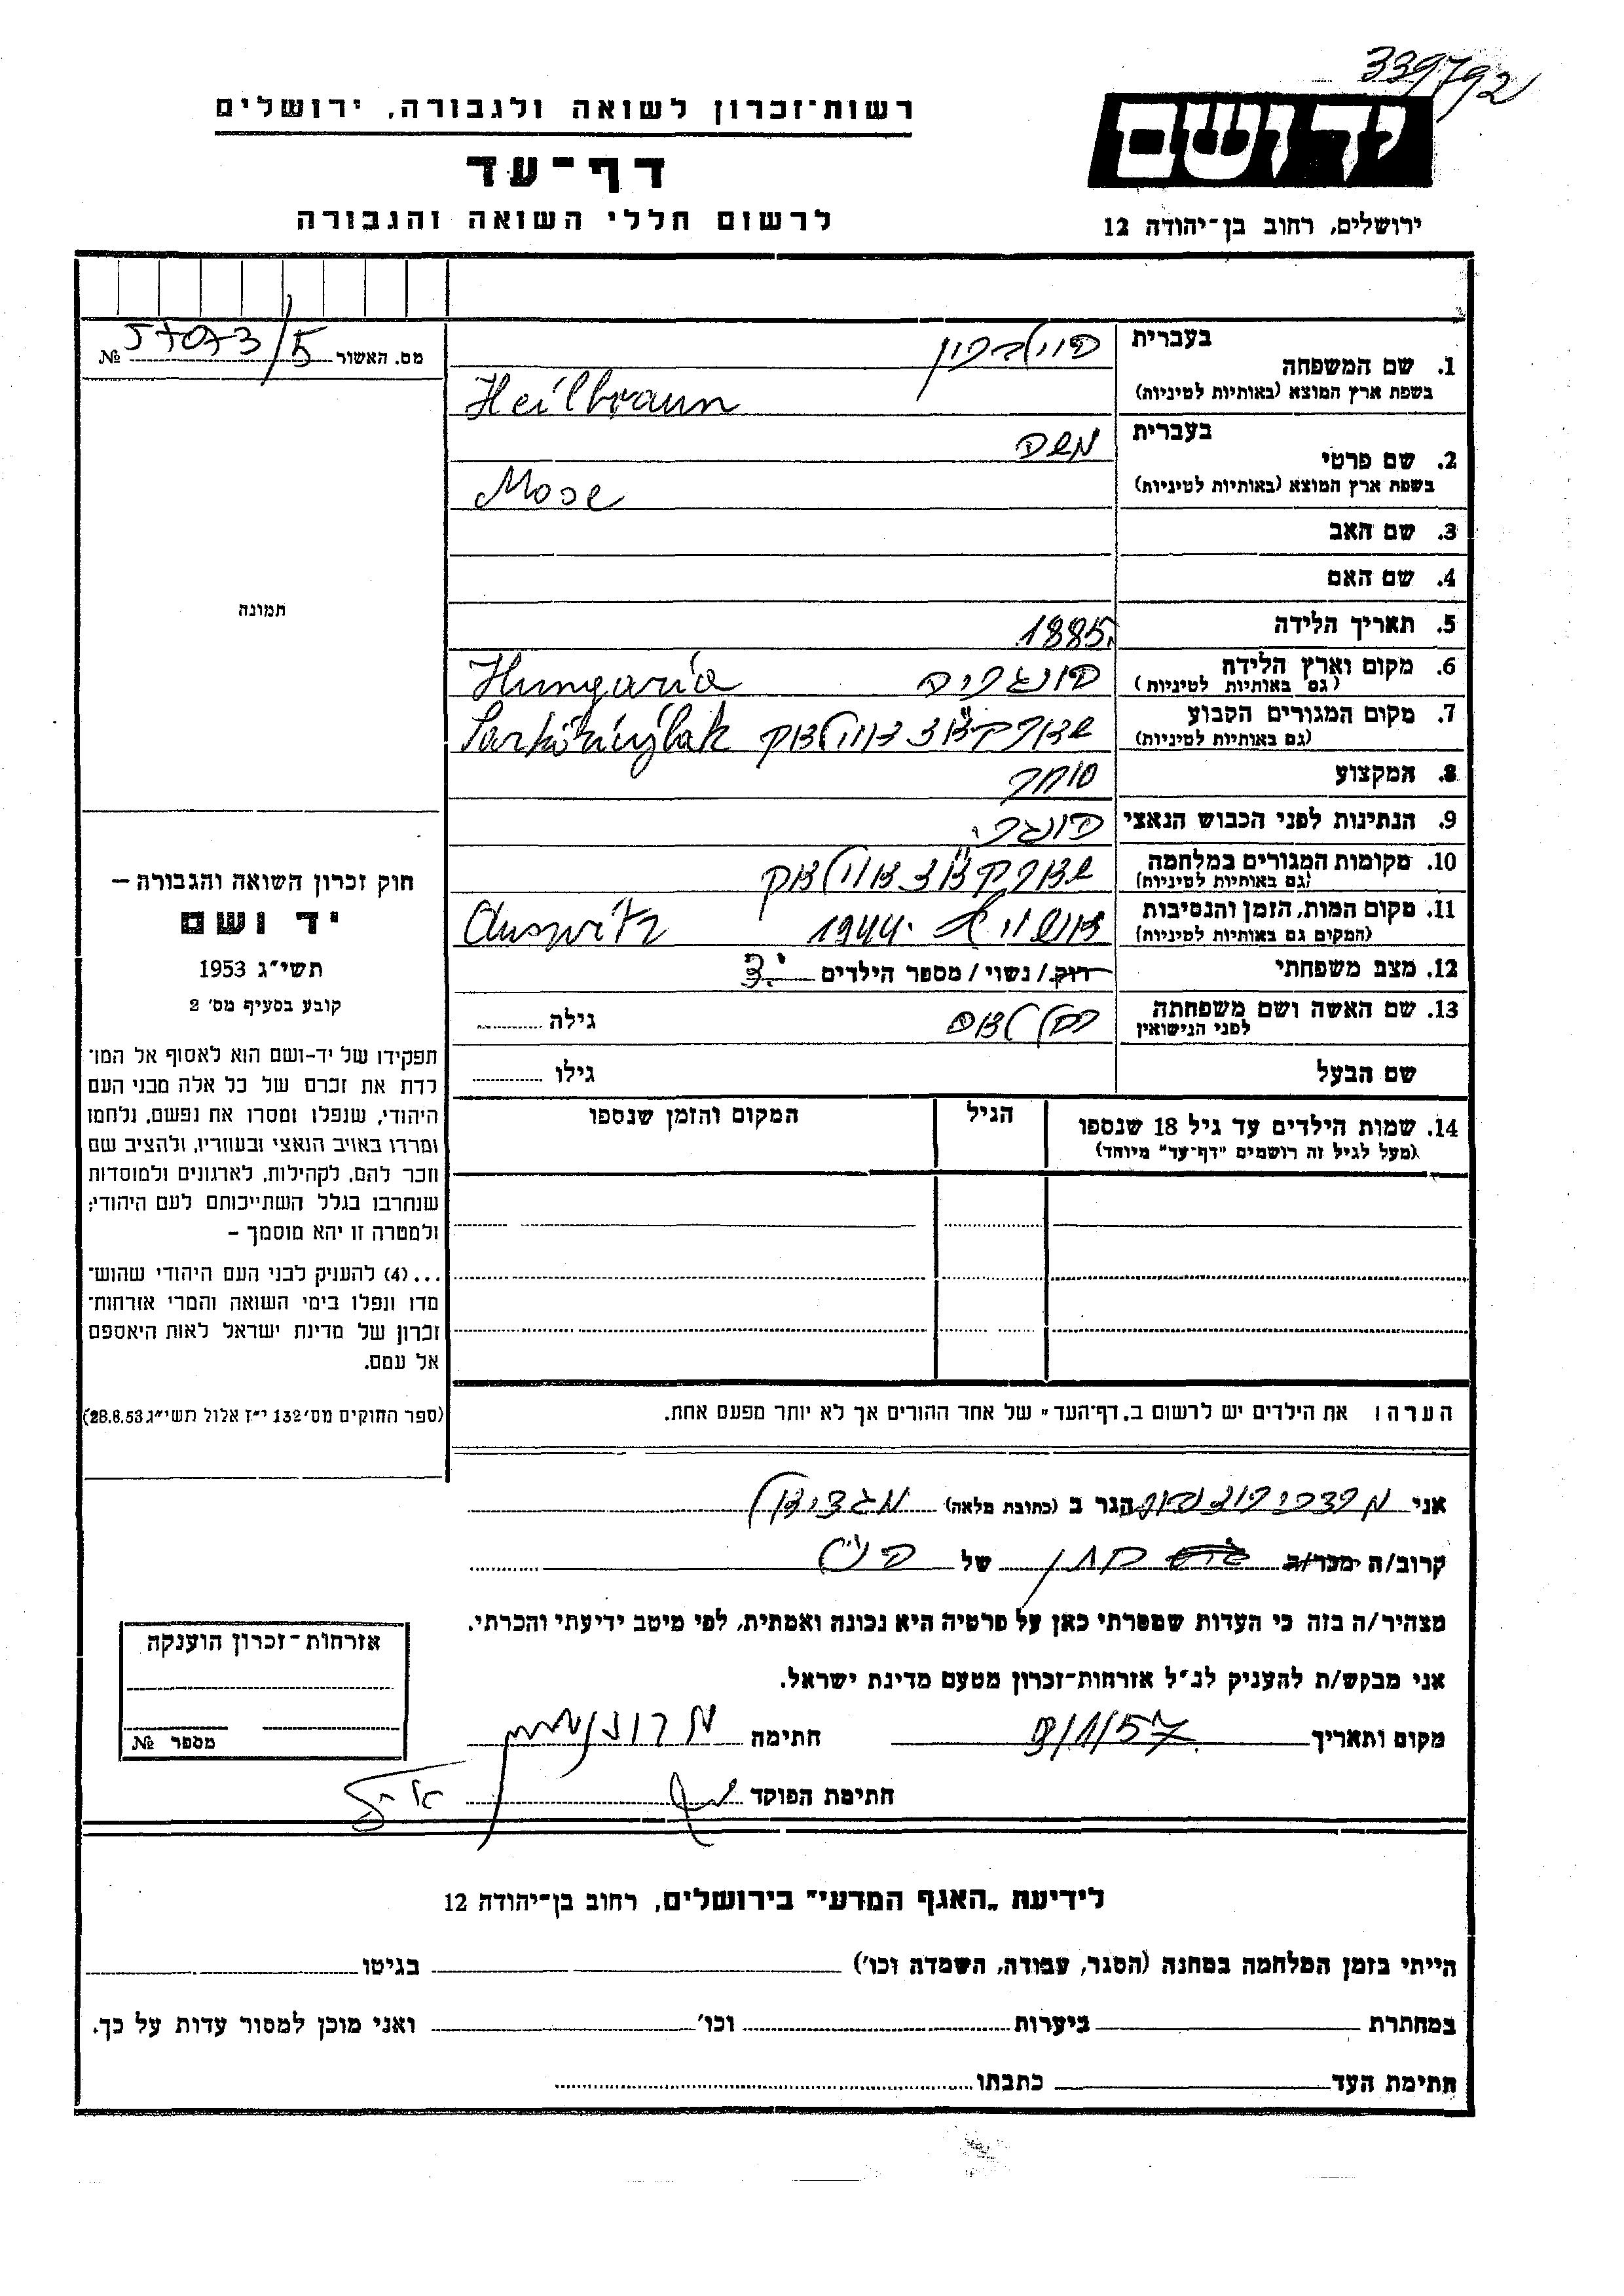 339792
רשות־זכרון לשואה ולגבורה, ירושלים
יד ושם
דף־עד
לרשום חללי השואה והגבורה
ירושלים, רחוב בן־יהודה 12
מס. האשור 57073/5 №
1. שם המשפחה
בעברית היילברון
בשפת ארץ המוצא (באותיות לטיניות) Heilbraun
2. שם פרטי
בעברית משה
בשפת ארץ המוצא (באותיות לטיניות) Mose
3. שם האב
4. שם האם
תמונה
5. תאריך הלידה 1885.
6. מקום וארץ הלידה הונגריה Hungaria
(גם באותיות לטיניות)
7. מקום המגורים הקבוע
(גם באותיות לטיניות)
8. המקצוע סוחר
9. הנתינות לפני הכבוש הנאצי הונגרי.
10. מקומות המגורים במלחמה
(גם באותיות לטיניות)
11. מקום המות, הזמן והנסיבות אושויץ 1944. Auswitz
(המקום גם באותיות לטיניות)
12. מצב משפחתי רוק/נשוי/ מספר הילדים 3.
13. שם האשה ושם משפחתה
לפני הנישואין
גילה
שם הבעל
גילו
14. שמות הילדים עד גיל 18 שנספו
(מעל לגיל זה רושמים "דף־עד" מיוחד)
הגיל
המקום והזמן שנספו
חוק זכרון השואה והגבורה –
יד ושם
תשי"ג 1953
קובע בסעיף מס' 2
תפקידו של יד-ושם הוא לאסוף אל המו־
לדת את זכרם של כל אלה מבני העם
היהודי, שנפלו ומסרו את נפשם, נלחמו
ומרדו באויב הנאצי ובעוזריו, ולהציב שם
וזכר להם, לקהילות, לארגונים ולמוסדות
שנחרבו בגלל השתייכותם לעם היהודי;
ולמטרה זו יהא מוסמך –
...(4) להעניק לבני העם היהודי שהוש־
מדו ונפלו בימי השואה והמרי אזרחות־
זכרון של מדינת ישראל לאות היאספם
אל עמם.
(ספר החוקים מס' 132 י"ז אלול תשי"ג 28.8.53)
הערה: את הילדים יש לרשום ב„דף־העד" של אחד ההורים אך לא יותר מפעם אחת.
אני הגר ב (כתובת מלאה) מגדיאל
קרוב/ה מכר/ה חתן של הנ"ל
מצהיר/ה בזה כי העדות שמסרתי כאן על פרטיה היא נכונה ואמתית, לפי מיטב ידיעתי והכרתי.
אני מבקש/ת להעניק לנ"ל אזרחות־זכרון מטעם מדינת ישראל.
מקום ותאריך 9/1/57 חתימה
חתימת הפוקד
אזרחות־זכרון הוענקה
מספר №
לידיעת „האגף המדעי" בירושלים, רחוב בן־יהודה 12
הייתי בזמן המלחמה במחנה (הסגר, עבודה, השמדה וכו') בגיטו
במחתרת ביערות וכו' ואני מוכן למסור עדות על כך.
חתימת העד כתבתו